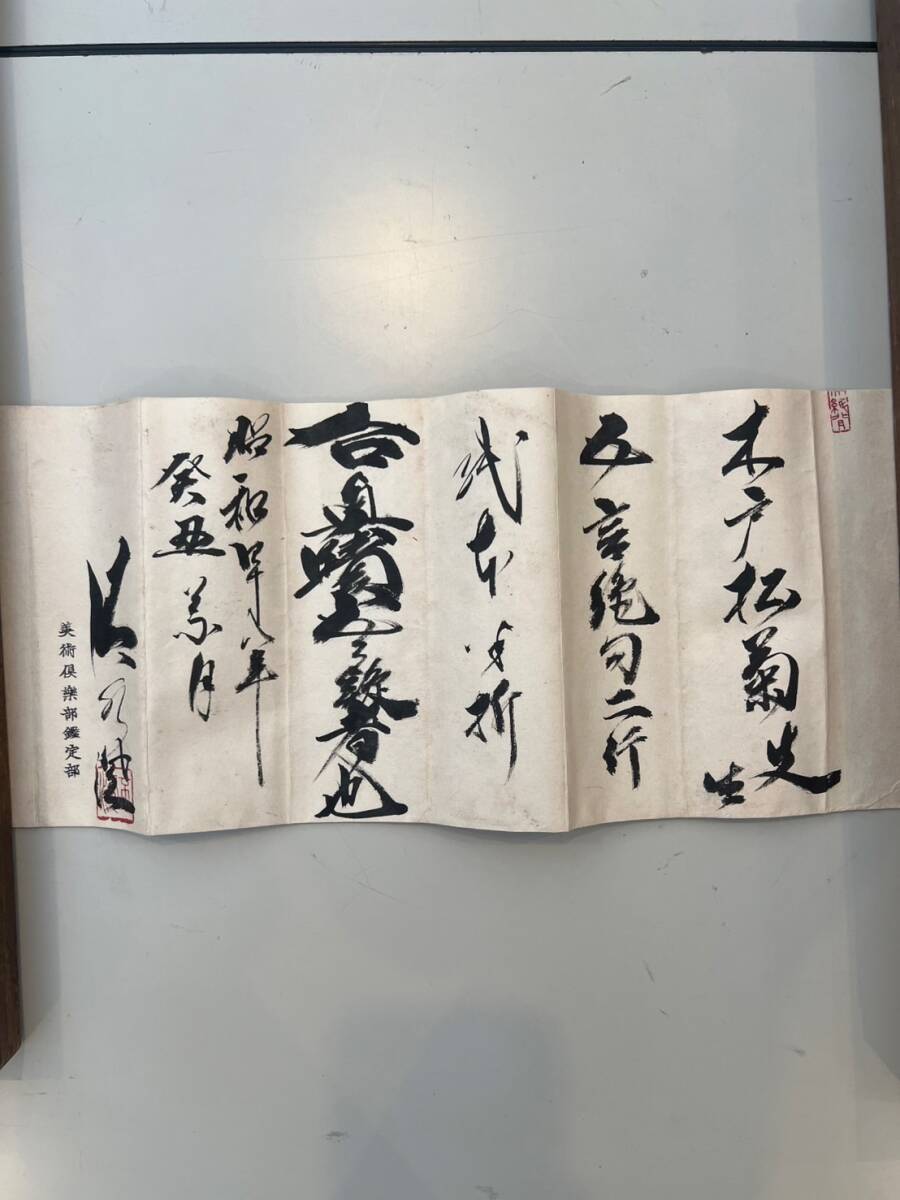 木戸松菊先生
五言絶句二行
紙本半折
右真蹟無疑者也
昭和四十八年
癸丑 月
美術倶楽部鑑定部